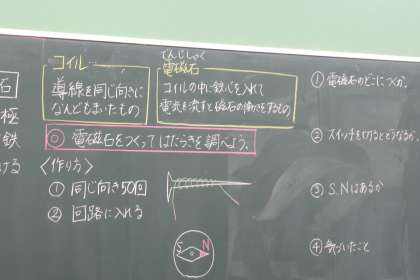 石
極
鉄
ける
コイル
導線を同じ向きに
なんどもまいたもの
でんじしゃく
電磁石
コイルの中に鉄心を入れて
電流を流すと磁石の働きをするもの
◎ 電磁石をつくってはたらきを調べよう。
〈作り方〉
① 同じ向き50回
② 回路に入れる
S N
① 電磁石のどこにつくか。
② スイッチを切るとどうなるか。
③ S.Nはあるか
④ 気づいたこと